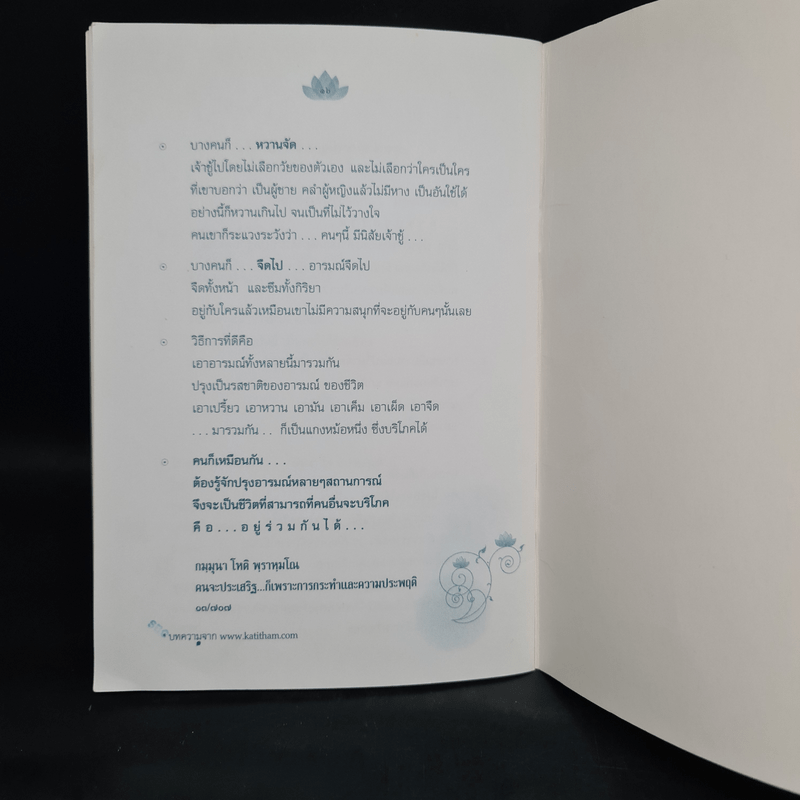 ๑๖
บางคนก็ . . . หวานจัด . . .
เจ้าชู้ไปโดยไม่เลือกวัยของตัวเอง และไม่เลือกว่าใครเป็นใคร
ที่เขาบอกว่า เป็นผู้ชาย คลำผู้หญิงแล้วไม่มีหาง เป็นอันใช้ได้
อย่างนี้ก็หวานเกินไป จนเป็นที่ไม่ไว้วางใจ
คนเขาก็ระแวงระวังว่า . . . คนๆนี้ มีนิสัยเจ้าชู้ . . .
บางคนก็ . . . จืดไป . . . อารมณ์จืดไป
จืดทั้งหน้า และซึมทั้งกิริยา
อยู่กับใครแล้วเหมือนเขาไม่มีความสนุกที่จะอยู่กับคนๆนั้นเลย
วิธีการที่ดีคือ
เอาอารมณ์ทั้งหลายนี้มารวมกัน
ปรุงเป็นรสชาติของอารมณ์ ของชีวิต
เอาเปรี้ยว เอาหวาน เอามัน เอาเค็ม เอาเผ็ด เอาจืด
. . . มารวมกัน . . ก็เป็นแกงหม้อหนึ่ง ซึ่งบริโภคได้
คนก็เหมือนกัน . . .
ต้องรู้จักปรุงอารมณ์หลายๆสถานการณ์
จึงจะเป็นชีวิตที่สามารถที่คนอื่นจะบริโภค
คื อ . . . อ ยู่ ร่ ว ม กั น ไ ด้ . . .
กมฺมุนา โหติ พฺราหฺมโณ
คนจะประเสริฐ...ก็เพราะการกระทำและความประพฤติ
๑๓/๗๐๗
บทความจาก www.katitham.com